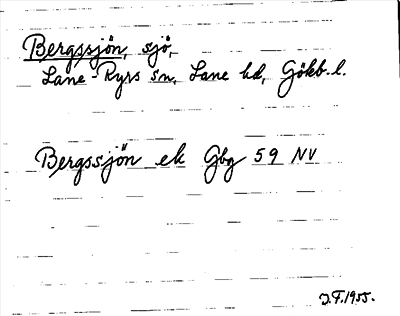 Bergssjön, sjö,
Lane-Ryrs sn, Lane hd, Gökb. l.
Bergssjön ek Gbg 59 NV
J.F. 1955.